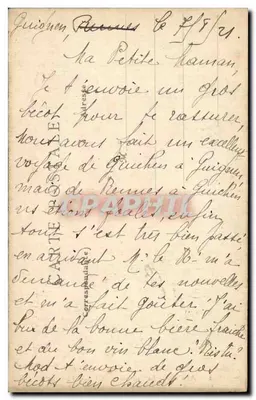 Guignen, Rennes le 7/8/21.
Ma Petite Maman,
Je t'envoie un gros
bécot pour te rassurer,
Nous avons fait un excellent
voyage de Guichen à Guignen
mais de Rennes à Guichen
enfin
tout s'est très bien passé
en arrivant M. le R. m'a
demandé de tes nouvelles
et m'a fait goûter. J'ai
bu de la bonne bière fraîche
et du bon vin blanc.
t'envoie de gros
bécots bien chauds
CARTE POSTALE
Correspondance
Adresse